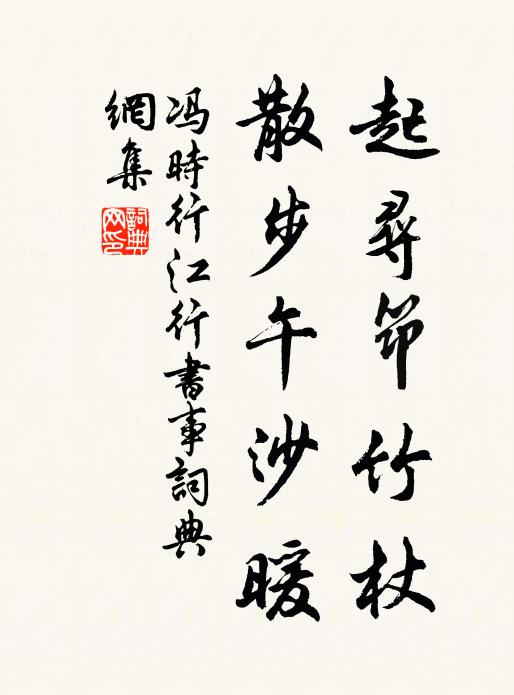 起尋筇竹杖
散步午沙暖
冯時行江行書事詞典
網集
詞典網印